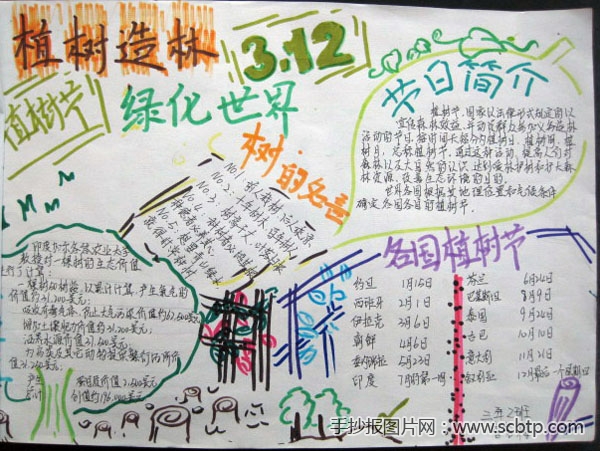 植树造林
3.12
植树节
绿化世界
节日简介
植树节,国家以法律形式规定的以
宣传森林效益,并动员群众参加义务造林
活动的节日。按时间长短分为植树日、植树周、植
树月,总称植树节。通过这种活动,提高人们对
森林以及大自然的认识,达到爱林护林和扩大森
林资源、改善生态环境的目的。
世界各国根据其地理位置和气候条件
确定各国各自的植树节。
树的名言
No.1:
No.2:
No.3:
No.4:
No.5:
印度加尔各答农业大学
教授对一棵树的生态价值
进行了计算:
一棵树50树龄,以累计计算,产生氧气的
价值约31,200美元;
吸收有毒气体、防止大气污染价值约62,500美元;
增加土壤肥力价值约31,200美元;
涵养水源价值37,500美元;
为鸟类及其它动物提供繁衍场所价
值31,250美元;
产生
价值2,500美元
创值约196,000美元
各国植树节
约旦 1月15日
西班牙 2月1日
伊拉克 3月6日
朝鲜 4月6日
委内瑞拉 5月23日
印度 7月的第一周
芬兰 6月24日
巴基斯坦 8月9日
泰国 9月24日
古巴 10月10日
意大利 11月21日
叙利亚 12月最后一个星期四
三年2班
手抄报图片网:www.scbtp.com